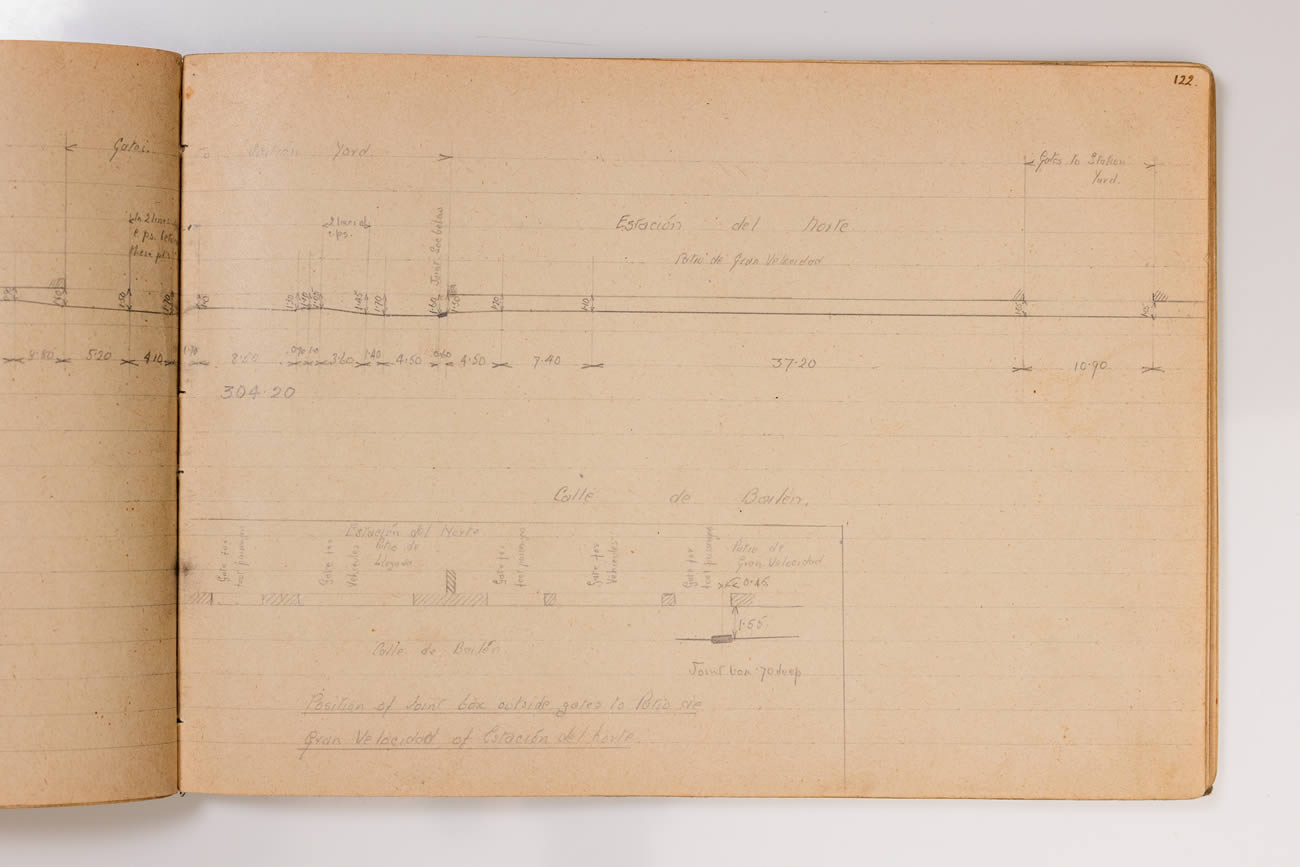 122.
Gates. to Station Yard.
Gates to Station
Yard.
In 2 lines
2 lines of
c.ps.
these pts
Joint See below
Estación del Norte
Patio de Gran Velocidad
1·50
1·45
1·70
1·60
1·50
1·20
1·10
8·80 5·20 4·10 1·70 8·60 ·70 3·60 1·40 4·50 0·60 4·50 7·40 37·20 10·90
304·20
Calle de Bailén.
Estación del Norte
Patio de
Llegada
Gate for
foot passengers
Gate for
Vehicules
Gate for
foot passengers
Gate for
Vehicules
Gate for
foot passengers
Patio de
Gran Velocidad
0·45
1·55
Calle de Bailén
Joint box ·70 deep
Position of Joint box outside gates to Patio de
Gran Velocidad of Estación del Norte.